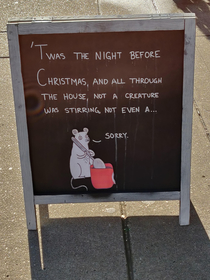 'Twas the night before
Christmas, and all through
the house, not a creature
was stirring, not even a...
Sorry.